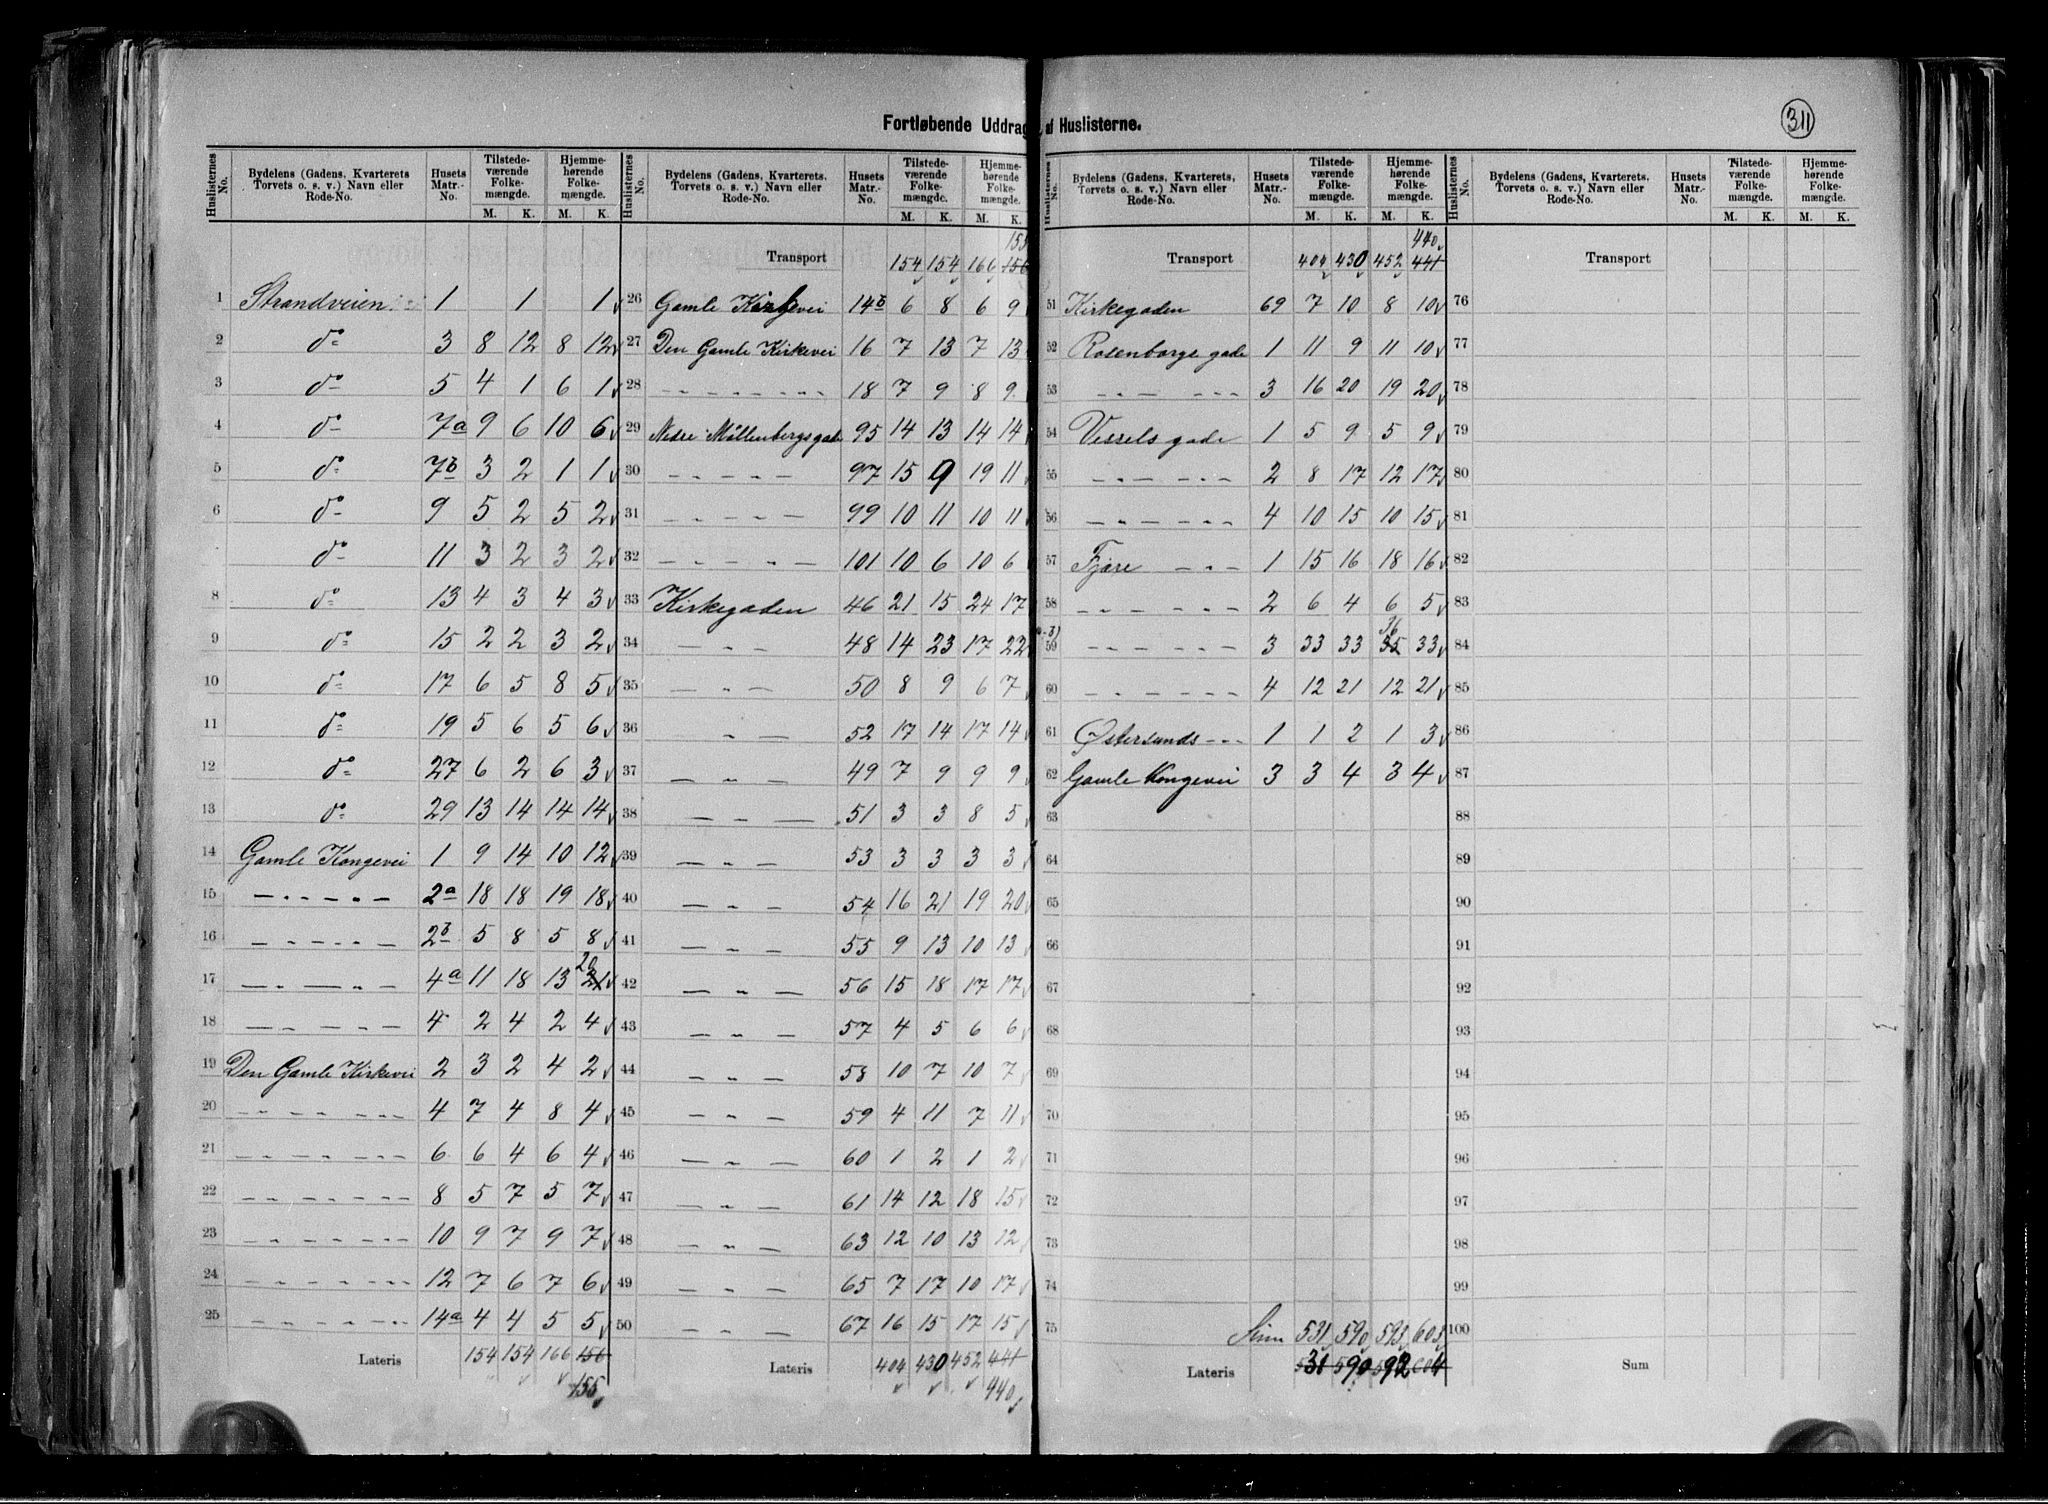 311
Fortløbende Uddrag af Huslisterne.
Huslisternes No. Bydelens (Gadens, Kvarterets, Torvets o. s. v.) Navn eller Rode-No. Husets Matr.-No. Tilstedeværende Folkemængde. M. K. Hjemmehørende Folkemængde. M. K.
1 Strandveien 1 1 1
2 do 3 8 12 8 12
3 do 5 4 1 6 1
4 do 7a 9 6 10 6
5 do 7b 3 2 1 1
6 do 9 5 2 5 2
do 11 3 2 3 2
8 do 13 4 3 4 3
9 do 15 2 2 3 2
10 do 17 6 5 8 5
11 do 19 5 6 5 6
12 do 27 6 2 6 3
13 do 29 13 14 14 14
14 Gamle Kongevei 1 9 14 10 12
15 — — — 2a 18 18 19 18
16 — — — 2b 5 8 5 8
17 — — — 4a 11 18 13 20 21
18 — — — 4 2 4 2 4
19 Den Gamle Kirkevei 2 3 2 4 2
20 — — — 4 7 4 8 4
21 — — — 6 6 4 6 4
22 — — — 8 5 7 5 7
23 — — — 10 9 7 9 7
24 — — — 12 7 6 7 6
25 — — — 14a 4 4 5 5
Lateris 154 154 166 156
155
Huslisternes No. Bydelens (Gadens, Kvarterets, Torvets o. s. v.) Navn eller Rode-No. Husets Matr.-No. Tilstedeværende Folkemængde. M. K. Hjemmehørende Folkemængde. M. K.
155
Transport 154 154 166 156
26 Gamle 14b 6 8 6 9
27 Den Gamle Kirkevei 16 7 13 7 13
28 — — — 18 7 9 8 9
29 Nedre Möllenbergsgade 95 14 13 14 14
30 — — — 97 15 9 19 11
31 — — — 99 10 11 10 11
32 — — — 101 10 6 10 6
33 Kirkegaden 46 21 15 24 17
34 — " — 48 14 23 17 22
35 — " — 50 8 9 6 7
36 — " — 52 17 14 17 14
37 — " — 49 7 9 9 9
38 — " — 51 3 3 8 5
39 — " — 53 3 3 3 3
40 — " — 54 16 21 19 20
41 — " — 55 9 13 10 13
42 — " — 56 15 18 17 17
43 — " — 57 4 5 6 6
44 — " — 58 10 7 10 7
45 — " — 59 4 11 7 11
46 — " — 60 1 2 1 2
47 — " — 61 14 12 18 15
48 — " — 63 12 10 13 12
49 — " — 65 7 17 10 17
50 — " — 67 16 15 17 15
Lateris 404 430 452 441
440
Huslisternes No. Bydelens (Gadens, Kvarterets, Torvets o. s. v.) Navn eller Rode-No. Husets Matr.-No. Tilstedeværende Folkemængde. M. K. Hjemmehørende Folkemængde. M. K.
440
Transport 404 430 452 441
51 Kirkegaden 69 7 10 8 10
52 Rosenborgs gade 1 11 9 11 10
53 — — — 3 16 20 19 20
54 Vessels gade 1 5 9 5 9
55 — — — 2 8 17 12 17
56 — — — 4 10 15 10 15
57 Fjære — — 1 15 16 18 16
58 — — — 2 6 4 6 5
59 — — — 3 33 33 36 35 33
60 — — — 4 12 21 12 21
61 Østersunds — — 1 1 2 1 3
62 Gamle Kongevei 3 3 4 3 4
63
64
65
66
67
68
69
70
71
72
73
74
75 Sum 531 590 593 603
Lateris 531 590 592 604
Huslisternes No. Bydelens (Gadens, Kvarterets, Torvets o. s. v.) Navn eller Rode-No. Husets Matr.-No. Tilstedeværende Folkemængde. M. K. Hjemmehørende Folkemængde. M. K.
Transport
76
77
78
79
80
81
82
83
84
85
86
87
88
89
90
91
92
93
94
95
96
97
98
99
100
Sum